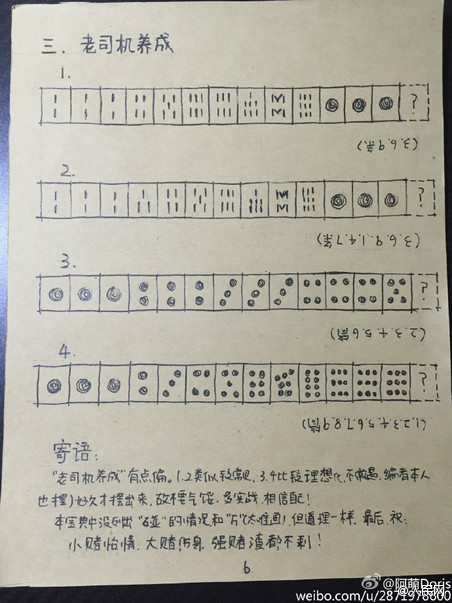 三. 老司机养成
1.
?
(3.6.9条)
2.
?
(3.6.9.1.4.7条)
3.
?
(2.3.4.5.6筒)
4.
?
(1.2.3.4.5.6.7.8.9筒)
寄语:
"老司机养成"有点偏。1.2类似较常规, 3.4比较理想化,不常遇,编者本人
也摆了好久才摆出来,故不要气馁,多实战,相信自己!
本宝典中没列出"碰"的情况和"万"(太难画),但道理一样,最后,祝:
小赌怡情,大赌伤身,强赌渣都不剩!
6
@阿萌Doris
@人民网
weibo.com/u/2871976600